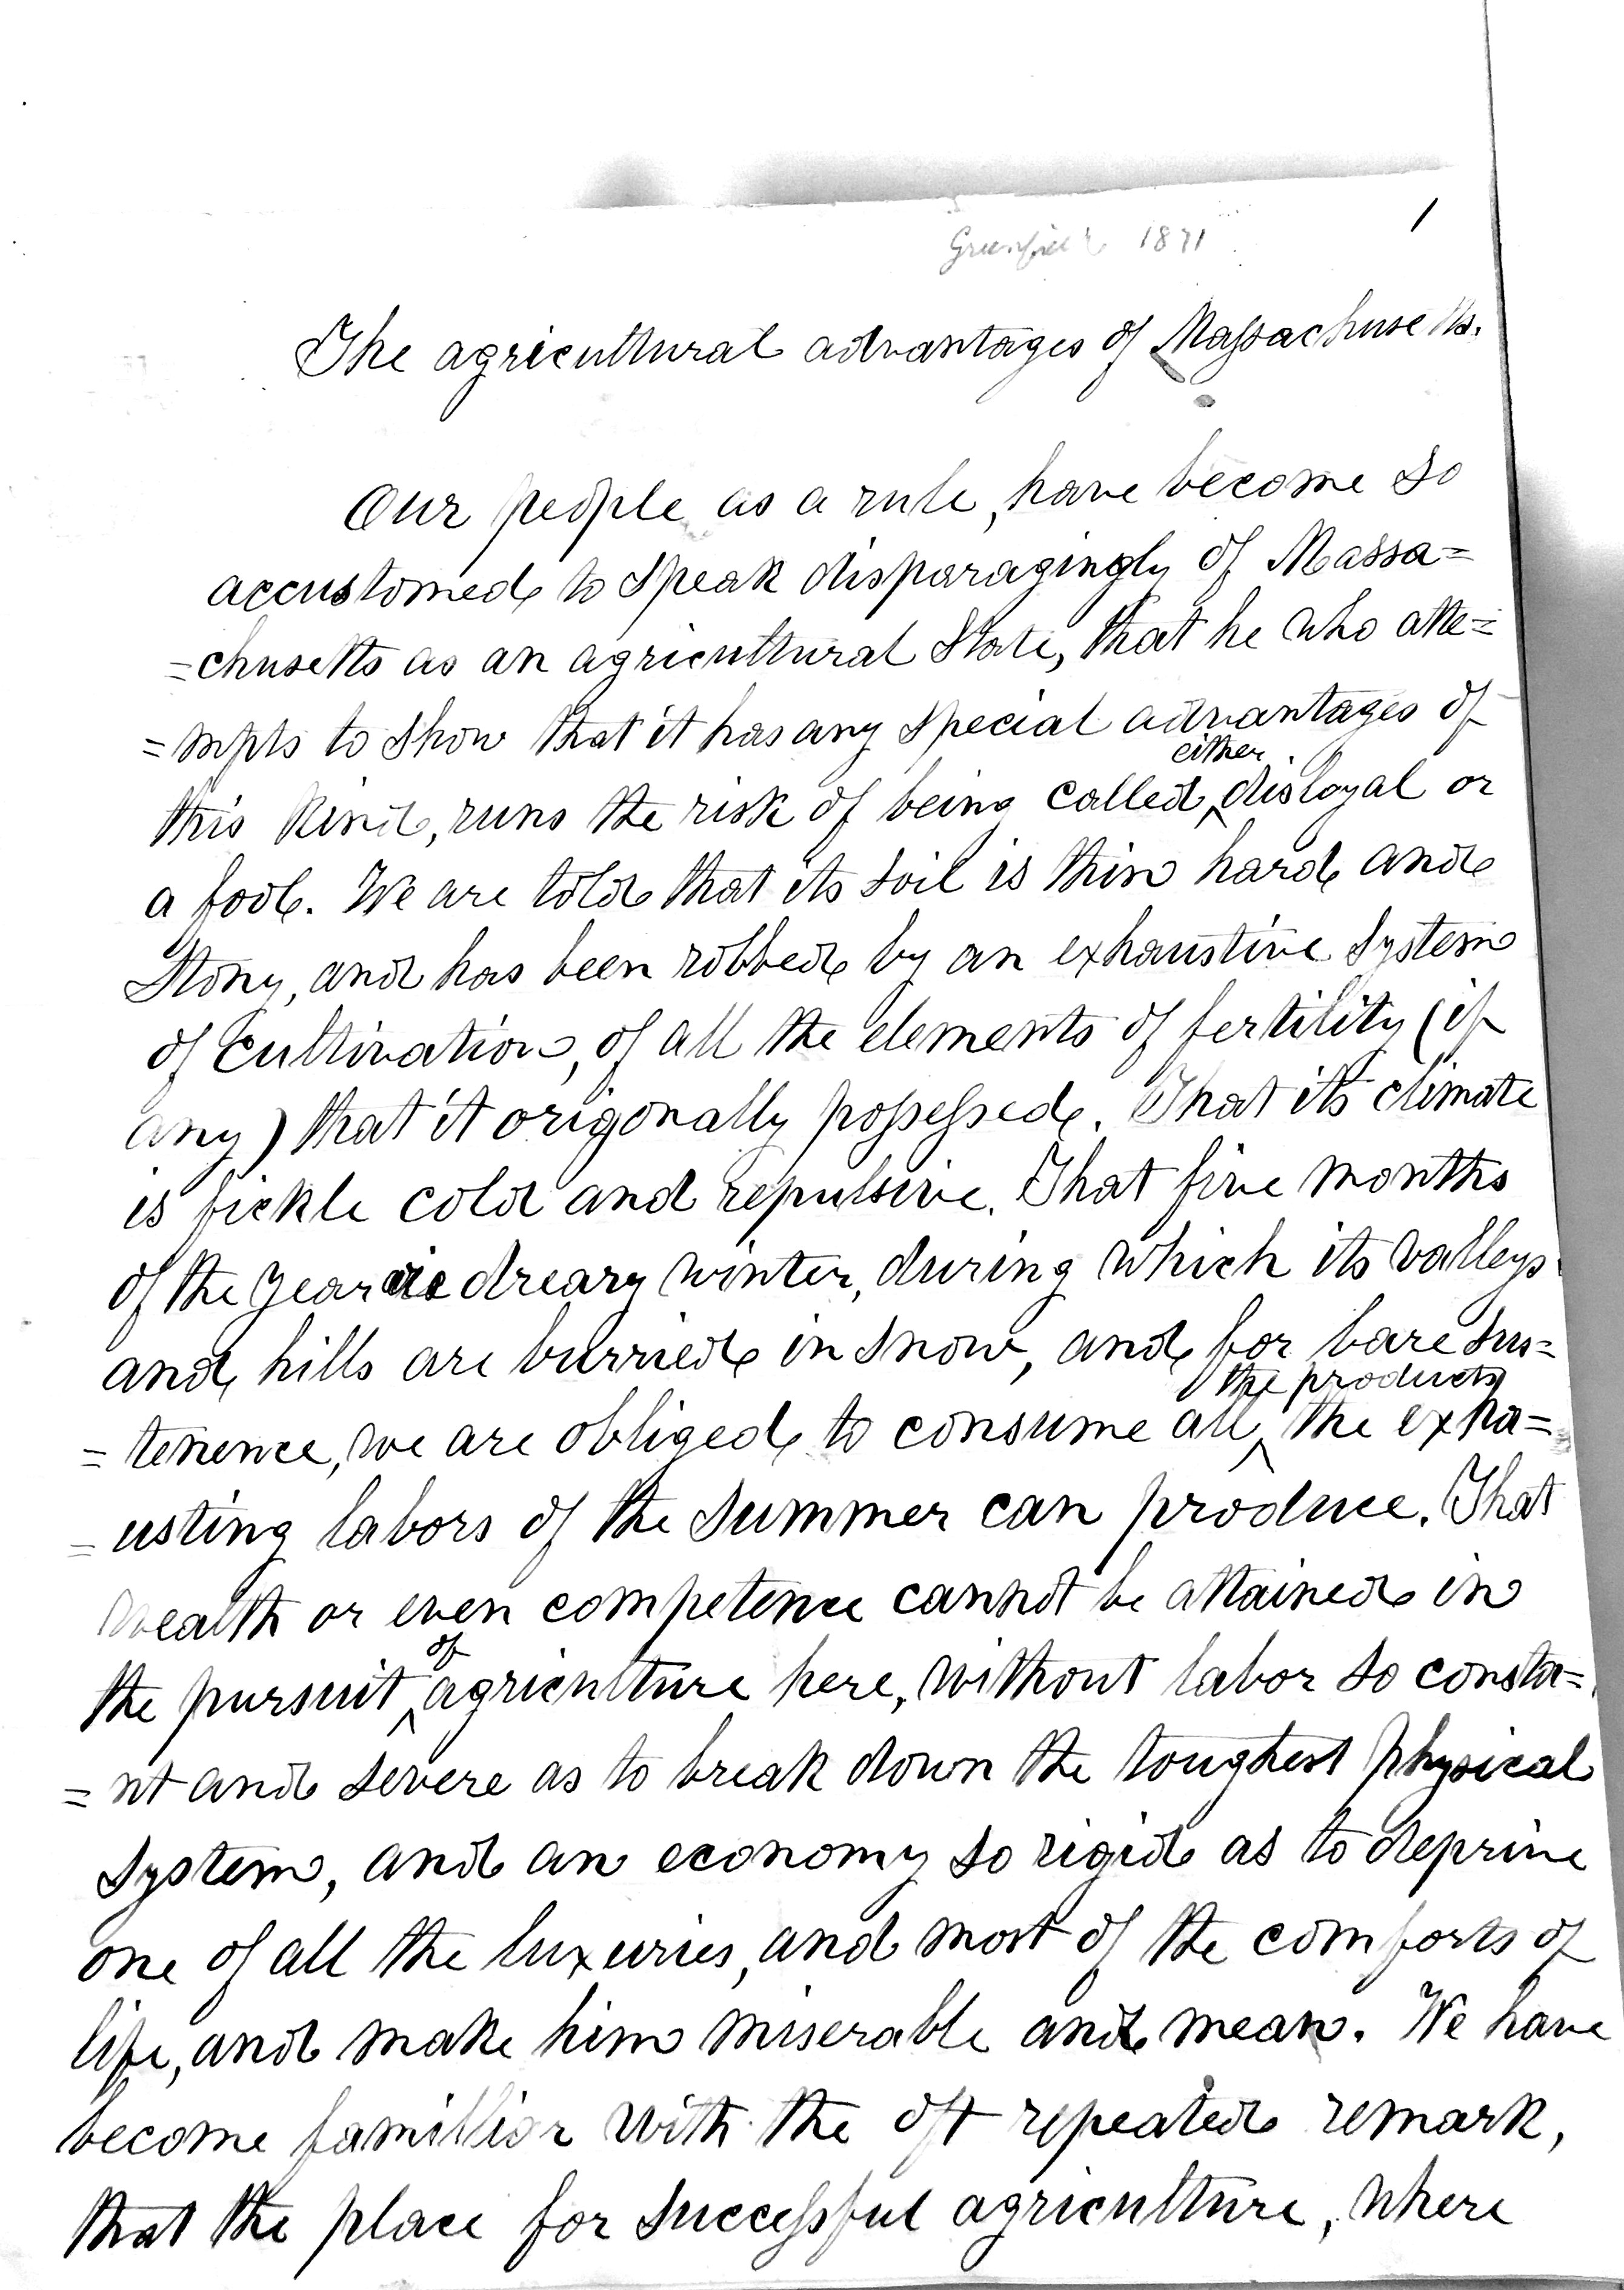 1
Greenfield 1871
The agricultural advantages of Massachusetts.
Our people as a rule, have become so
accustomed to speak disparagingly of Massa=
=chusetts as an agricultural State, that he who atte=
=mpts to show that it has any special advantages of
either
this kind, runs the risk of being called ^ disloyal or
a fool. We are told that its soil is thin hard and
stony, and has been robbed by an exhaustive system
of cultivation, of all the elements of fertility (if
any) that it origonally possessed. That its climate
is fickle cold and repulsive. That five months
of the year is dreary winter, during which its valleys
and hills are burried in snow, and for bare sus=
the products
=tenence, we are obliged to consume all ^ the exha=
=usting labors of the summer can produce. That
wealth or even competence cannot be attained in
of
the pursuit ^ agriculture here, without labor so consta=
=nt and severe as to break down the toughest physical
system, and an economy so rigid as to deprive
one of all the luxuries, and most of the comforts of
life, and make him miserable and mean. We have
become famillior with the oft repeated remark,
that the place for successful agriculture, where